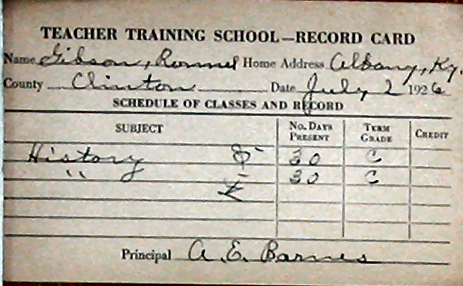 TEACHER TRAINING SCHOOL—RECORD CARD
Name Gibson, Rommel Home Address Albany, Ky.
County Clinton Date July 2 1926
SCHEDULE OF CLASSES AND RECORD
SUBJECT No. Days Present Term Grade Credit
History 30 C
" 30 C
Principal A. E. Barnes